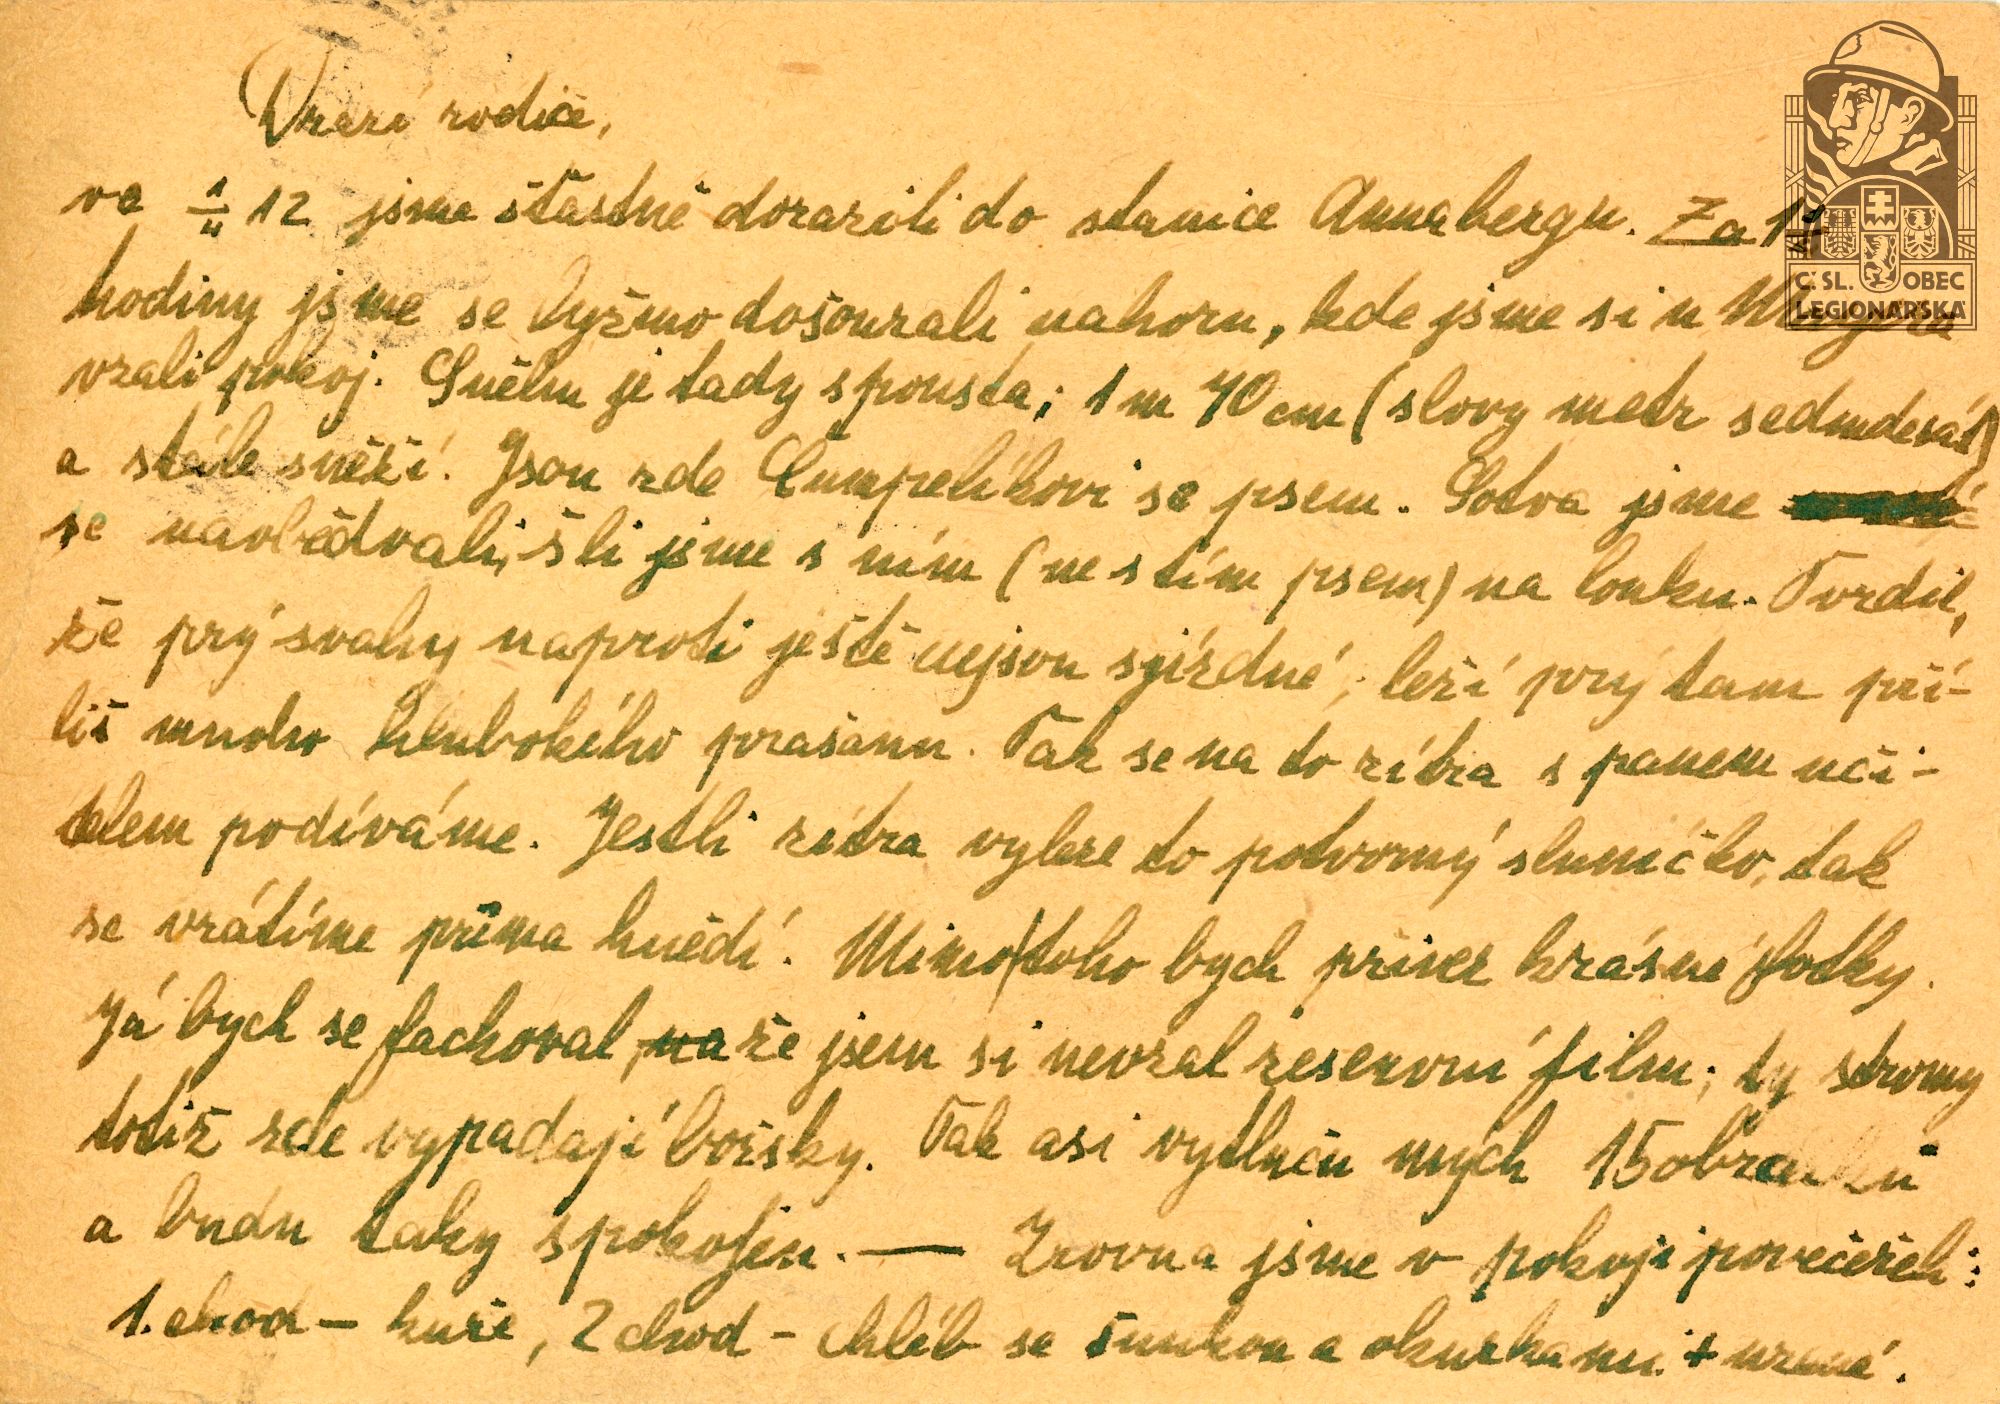 Drazí rodiče,
ve 1/4 12 jsme šťastně dorazili do stanice Annabergu. Za 1 1/4
hodiny jsme se lyžmo došourali nahoru, kde jsme si u
vzali pokoj. Sněhu je tady spousta; 1 m 70 cm (slovy metr sedmdesát)
a stále sněží. Jsou zde Cumpelíkovi se psem. Sotva jsme
se naobědvali, šli jsme s ním (ne s tím psem) na louku. Tvrdil,
že prý svahy naproti ještě nejsou sjízdné; leží prý tam pří-
liš mnoho hlubokého prašanu. Tak se na to zítra s panem uči-
telem podíváme. Jestli zítra vyleze to potvorný sluníčko, tak
se vrátíme príma hnědí. Mimo/toho bych přivez krásné fotky.
Já bych se fackoval, že jsem si nevzal reservní film; ty stromy
totiž zde vypadají božsky. Tak asi vytluču mých 15 obrázků
a budu taky spokojen. — Zrovna jsme v pokoji povečeřeli:
1. chod – kuře, 2 chod – chléb se šunkou a okurkami + uzené.
Č. SL. OBEC
LEGIONÁŘSKÁ